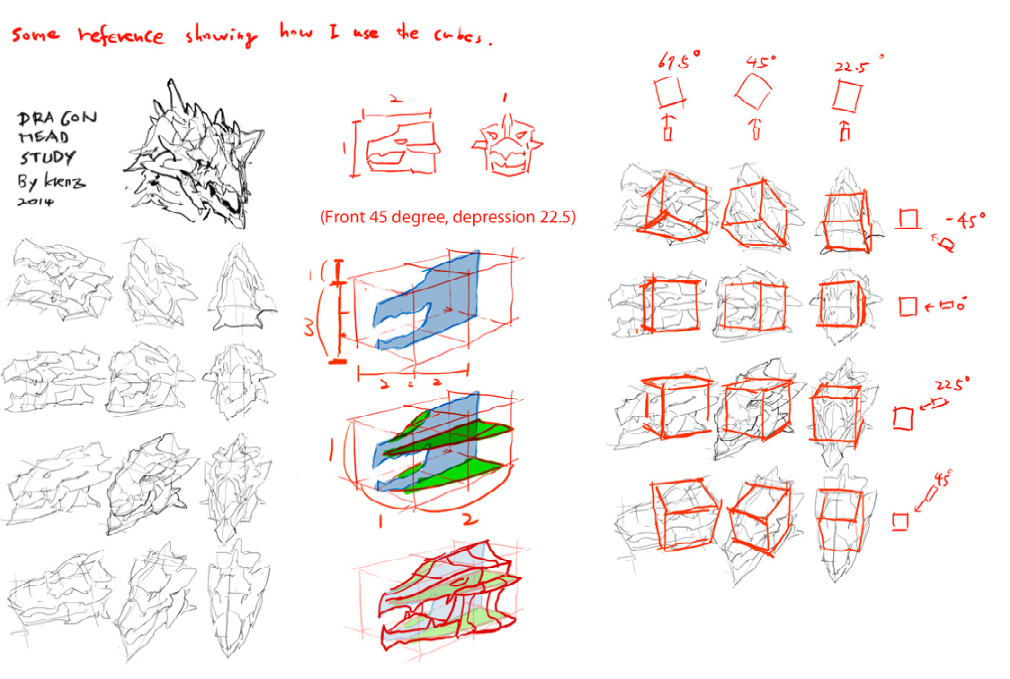 Some reference showing how I use the cubes.
DRAGON
HEAD
STUDY
By krenz
2014
2
1
1
(Front 45 degree, depression 22.5)
1
3
2 : 2
1
1 2
67.5°
45°
22.5°
-45°
0°
22.5°
45°